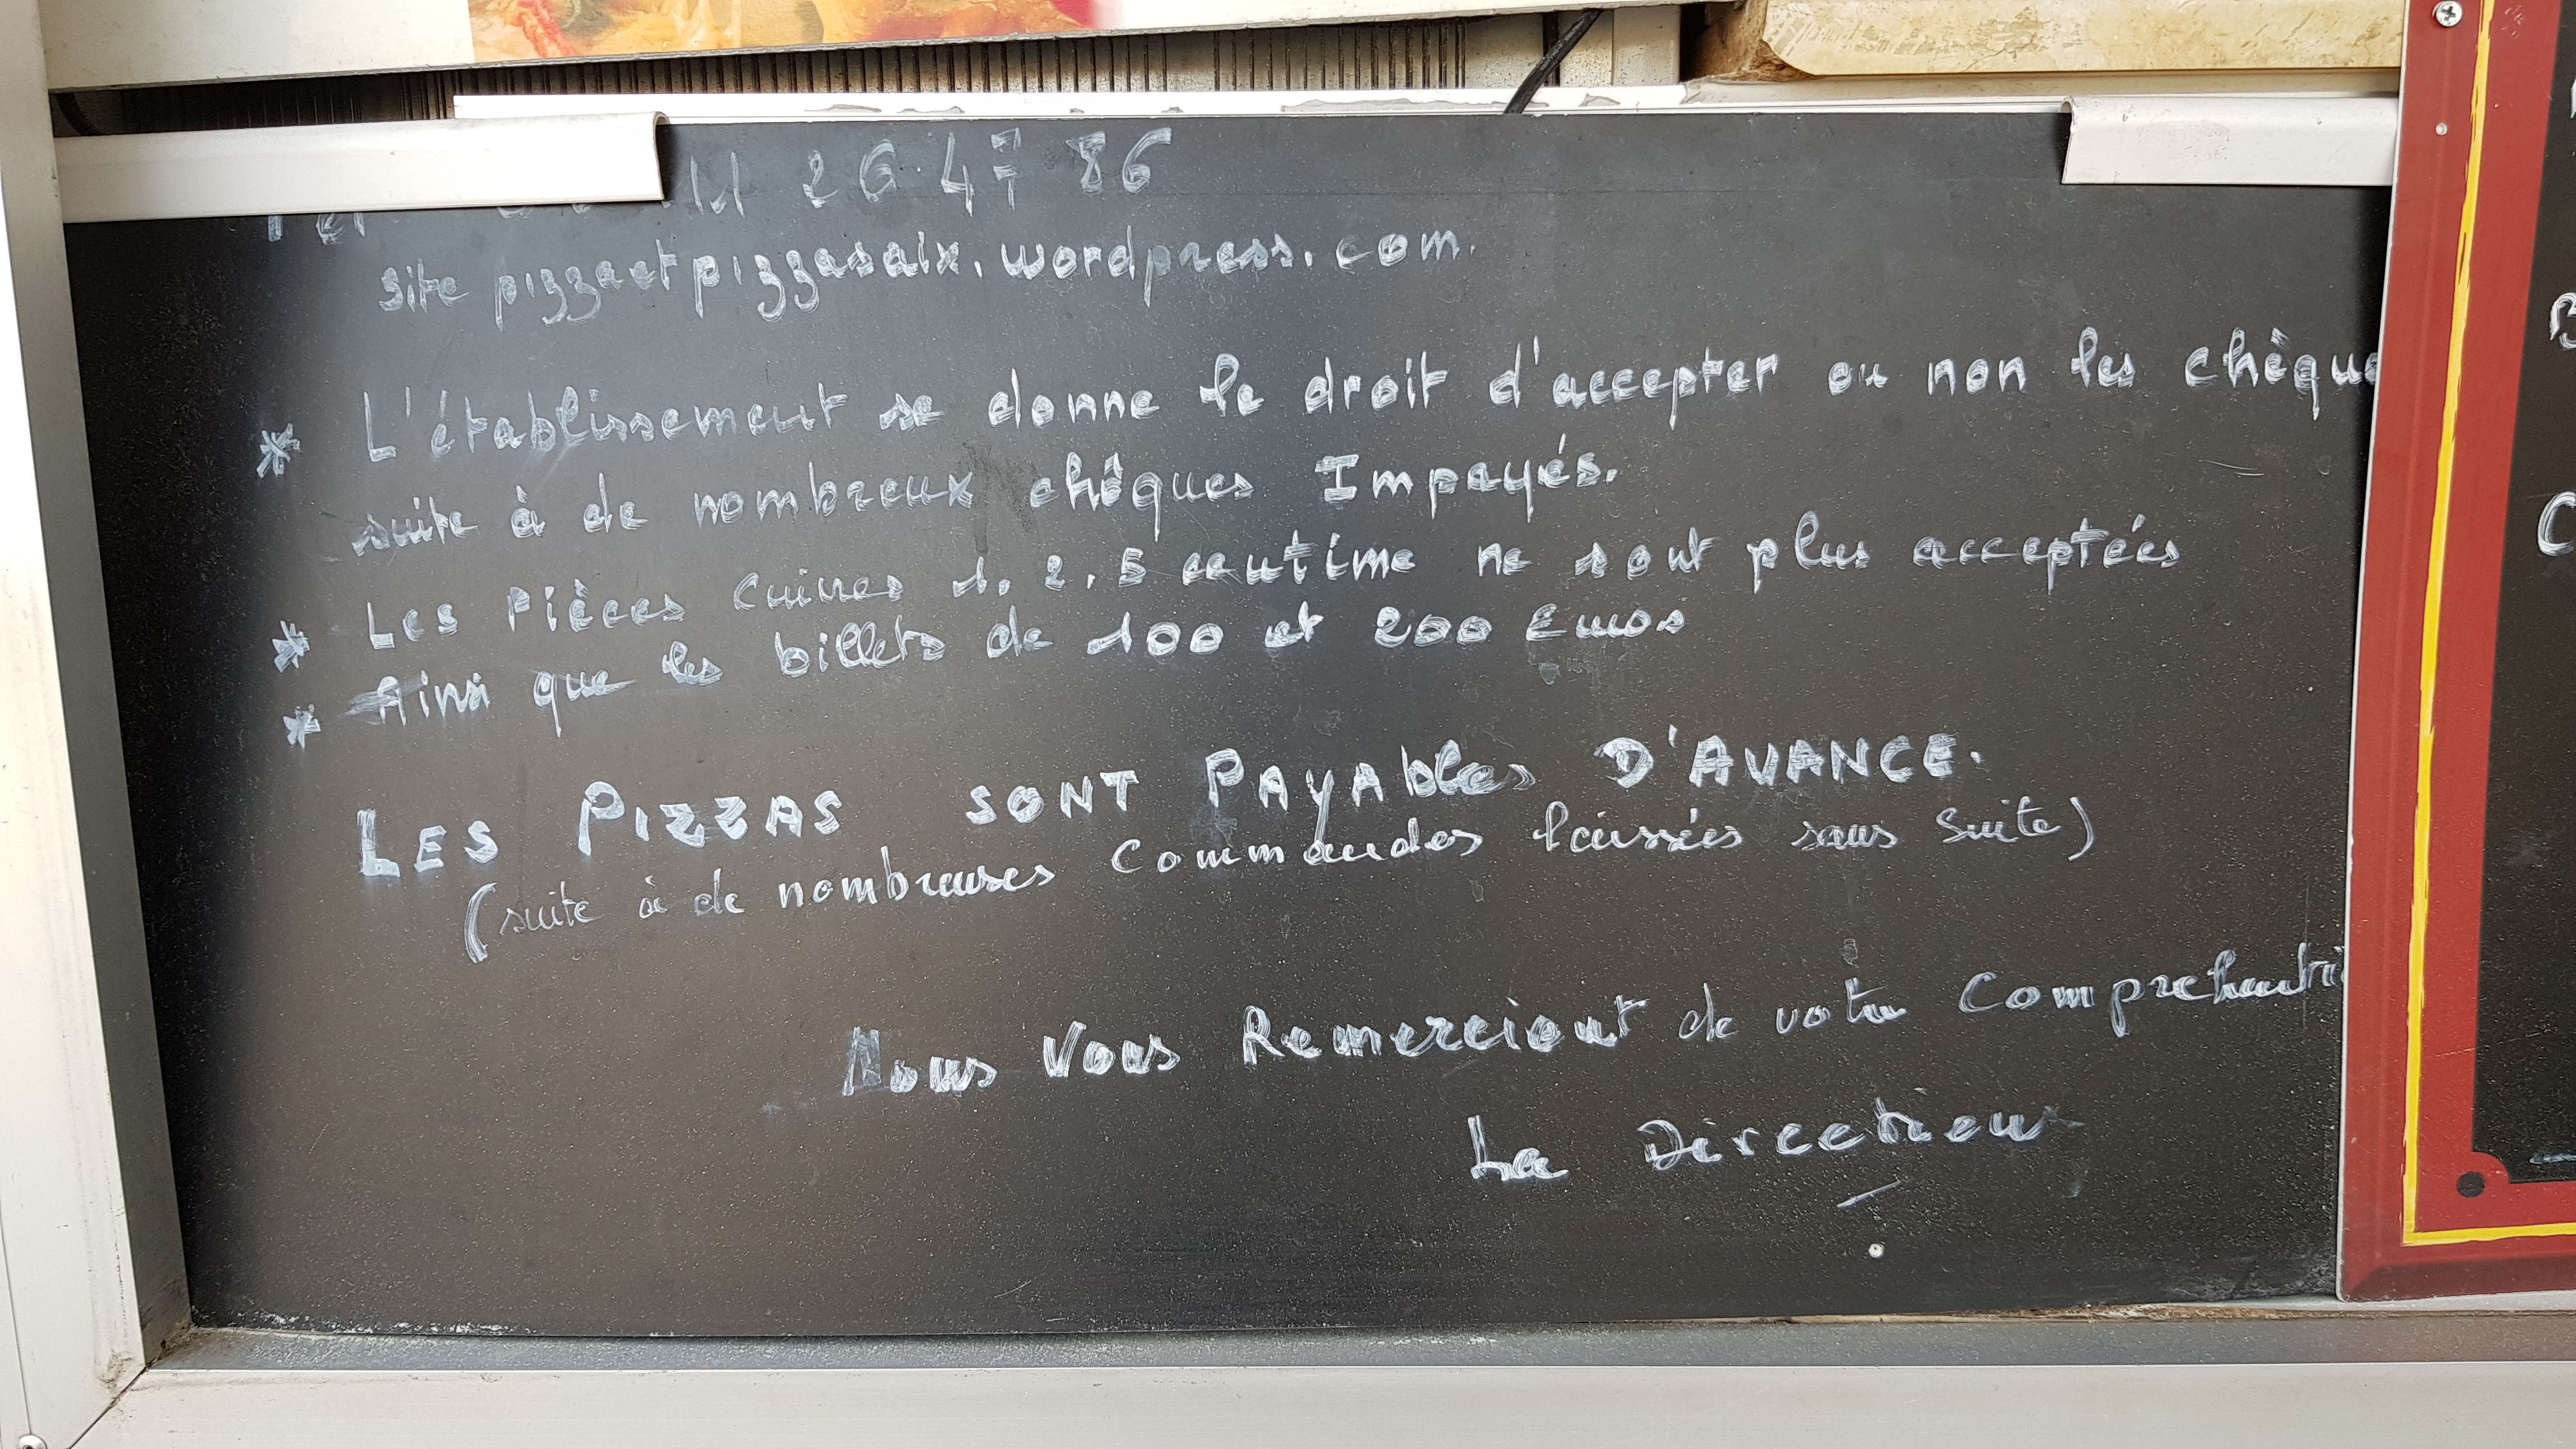 26.47 86
site pizzaetpizzasaix.wordpress.com.
* L'établissement se donne le droit d'accepter ou non les chèque
suite à de nombreux chèques Impayés.
* Les Pièces cuivres 1. 2. 5 centime ne sont plus acceptées
* Ainsi que les billets de 100 et 200 Euros
LES PIZZAS SONT PAYAbles D'AVANCE.
(suite à de nombreuses commandes laissées sans suite)
Nous Vous Remerciont de votre
La Direction
B
C